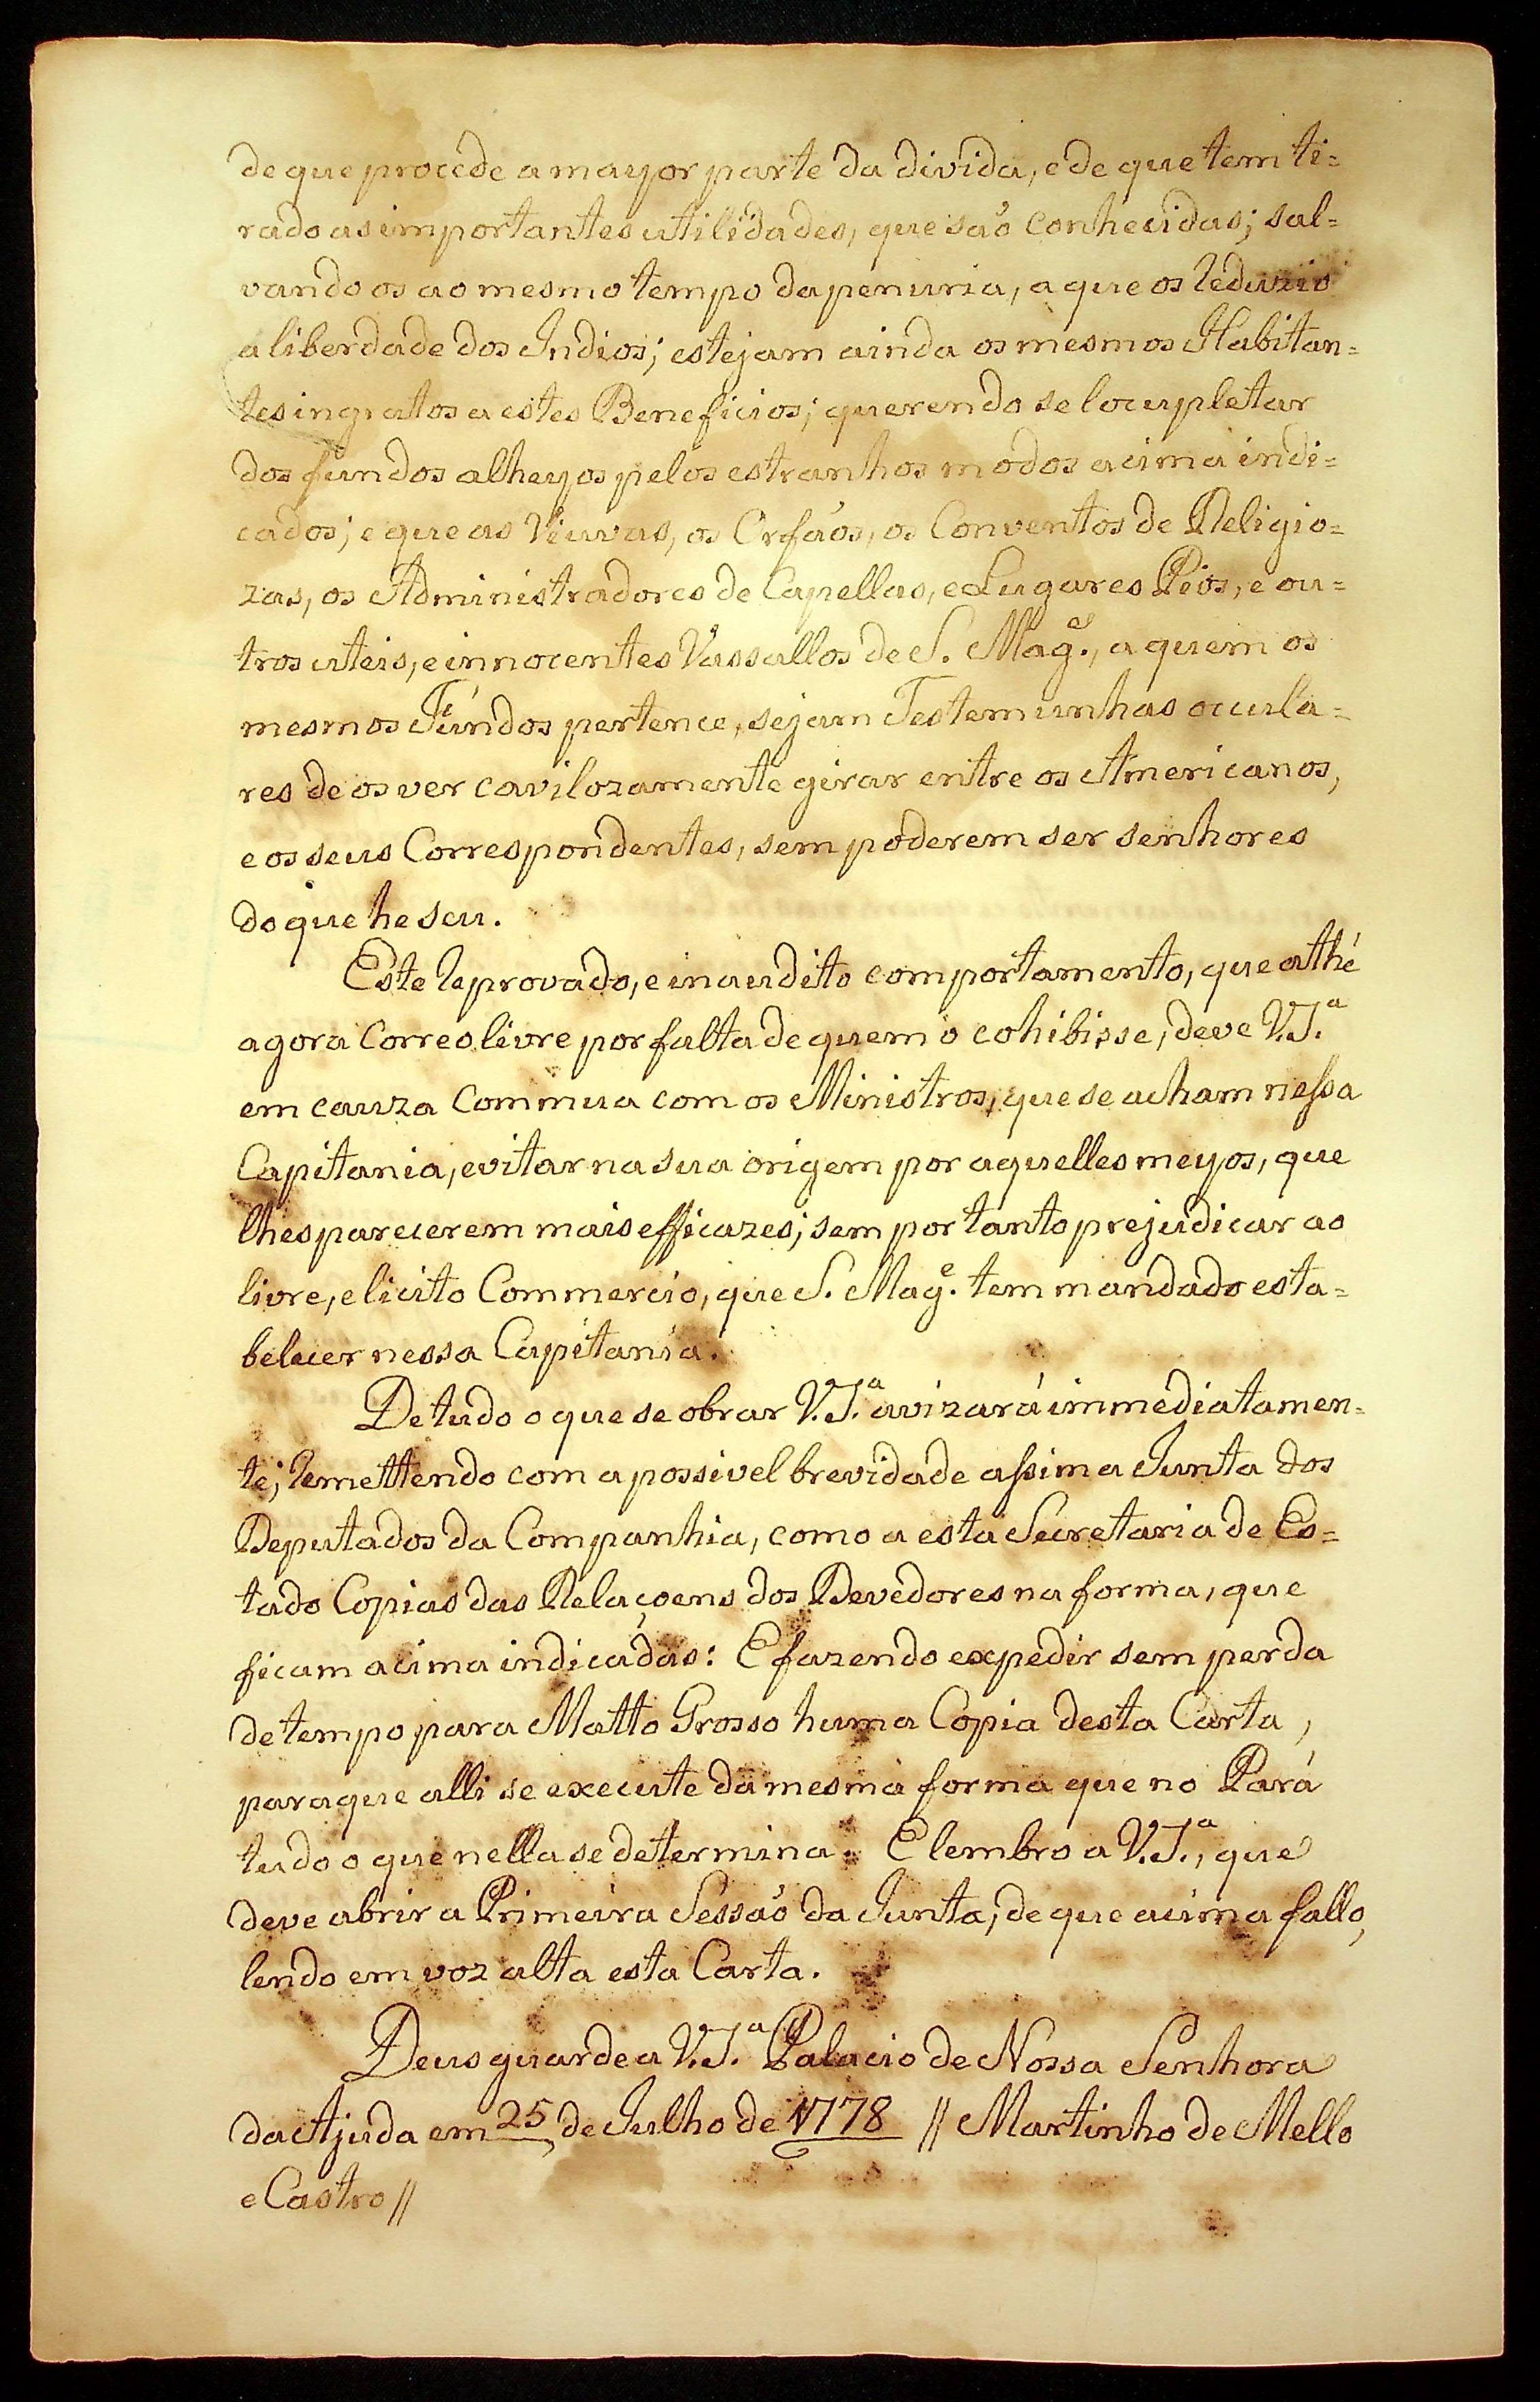 de que procede a mayor parte da divida, e de que tem ti=
rado as importantes utilidades, que saõ conhecidas; sal=
vando os ao mesmo tempo da penuria, a que os reduzio
a liberdade dos Indios; estejam ainda os mesmos Habitan=
tes ingratos a estes Beneficios; querendo se locupletar
dos fundos alheyos pelos estranhos modos acima indi=
cados; e que as Viuvas, os Orfaõs, os Conventos de Religio=
zas, os Administradores de Capellas, e Lugares Pios, e ou=
tros uteis, e innocentes Vassallos de S. Mag.e, a quem os
mesmos Fundos pertence, sejam Testemunhas ocula=
res de os ver cavilozamente girar entre os Americanos,
e os seus Correspondentes, sem poderem ser senhores
do que he seu.
Este reprovado, e inaudito comportamento, que athé
agora correo livre por falta de quem o cohibisse, deve V.S.a
em cauza commua com os Ministros, que se acham nessa
Capitania, evitar na sua origem por aquelles meyos, que
lhes parecerem mais efficazes; sem por tanto prejudicar ao
livre, e licito Commercio, que S. Mag.e tem mandado esta=
belecer nessa Capitania.
De tudo o que se obrar V.S.a avizará immediatamen=
te; remettendo com a possivel brevidade assim a Junta dos
Deputados da Companhia, como a esta Secretaria de Es=
tado Copias das Relaçoens dos Devedores na forma, que
ficam acima indicadas: E fazendo expedir sem perda
de tempo para Matto Grosso huma Copia desta Carta,
para que alli se execute da mesma forma que no Pará
tudo o que nella se determina. E lembro a V.S.a, que
deve abrir a Primeira Sessaõ da Junta, de que acima fallo,
lendo em voz alta esta Carta.
Deus guarde a V.S.a Palacio de Nossa Senhora
da Ajuda em 25 de Julho de 1778 // Martinho de Mello
e Castro //